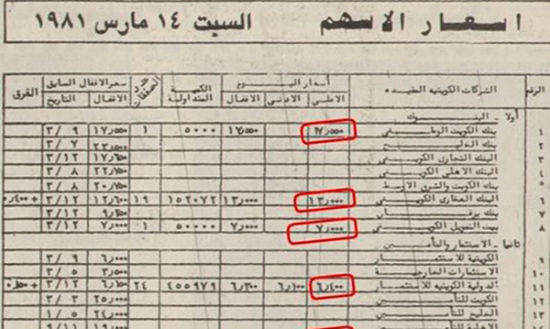 أسعار الأسهم السبت ١٤ مارس ١٩٨١
الرقم الشركات الكويتيه المقيده أسعار اليوم الكمية المتداولة عدد الصفقات سعر الاقفال السابق الفرق
الأعلى الأدنى الاقفال الاقفال التاريخ
أولا - البنوك
١ بنك الكويت الوطني ١٧٫٥٥٠ ١٧٫٥٥٠ ٥٠٠٠ ١ ١٧٫٥٥٠ ٣/٩
٢ بنك الخليج ٢٣٫٥٠٠ ٣/٧
٣ البنك التجاري الكويتي ١٧٫٦٥٠ ٣/١٢
٤ البنك الاهلي الكويتي ٢٢٫٧٥٠ ٣/٨
٥ بنك الكويت والشرق الاوسط ٢٠٫٧٥٠ ٣/٨
٦ البنك العقاري الكويتي ١٣٫٠٠٠ ١٣٫٠٠٠ ١٥٢٠٧٢ ١٩ ١٢٫٦٠٠ ٣/١٢ ٠٫٤٠٠+
٧ بنك برقان ٩٫٢٥٠ ٣/١٢
٨ بيت التمويل الكويتي ٧٫٠٠٠ ٧٫٠٠٠ ٥٠٠٠٠ ١ ٧٫٠٠٠ ٣/١٢
ثانيا - الاستثمار والتأمين
٩ الكويتية للاستثمار ٦٫٠٠٠ ٣/٩
١٠ الاستثمارات الخارجية ٦٫٠٠٠ ٣/٥
١١ الدولية الكويتيه للاستثمار ٦٫٤٠٠ ٦٫١٠٠ ٦٫٣٠٠ ٤٥٥٩٧٩ ٢٤ ٦٫١٥٠ ٣/١٢ ٠٫١٥٠+
١٢ الكويت للتأمين ٢٥٫٠٠٠ ٣/٣
١٣ الخليج للتأمين ٢٤٫٠٠٠ ١/٥
الاهلية للتأمين